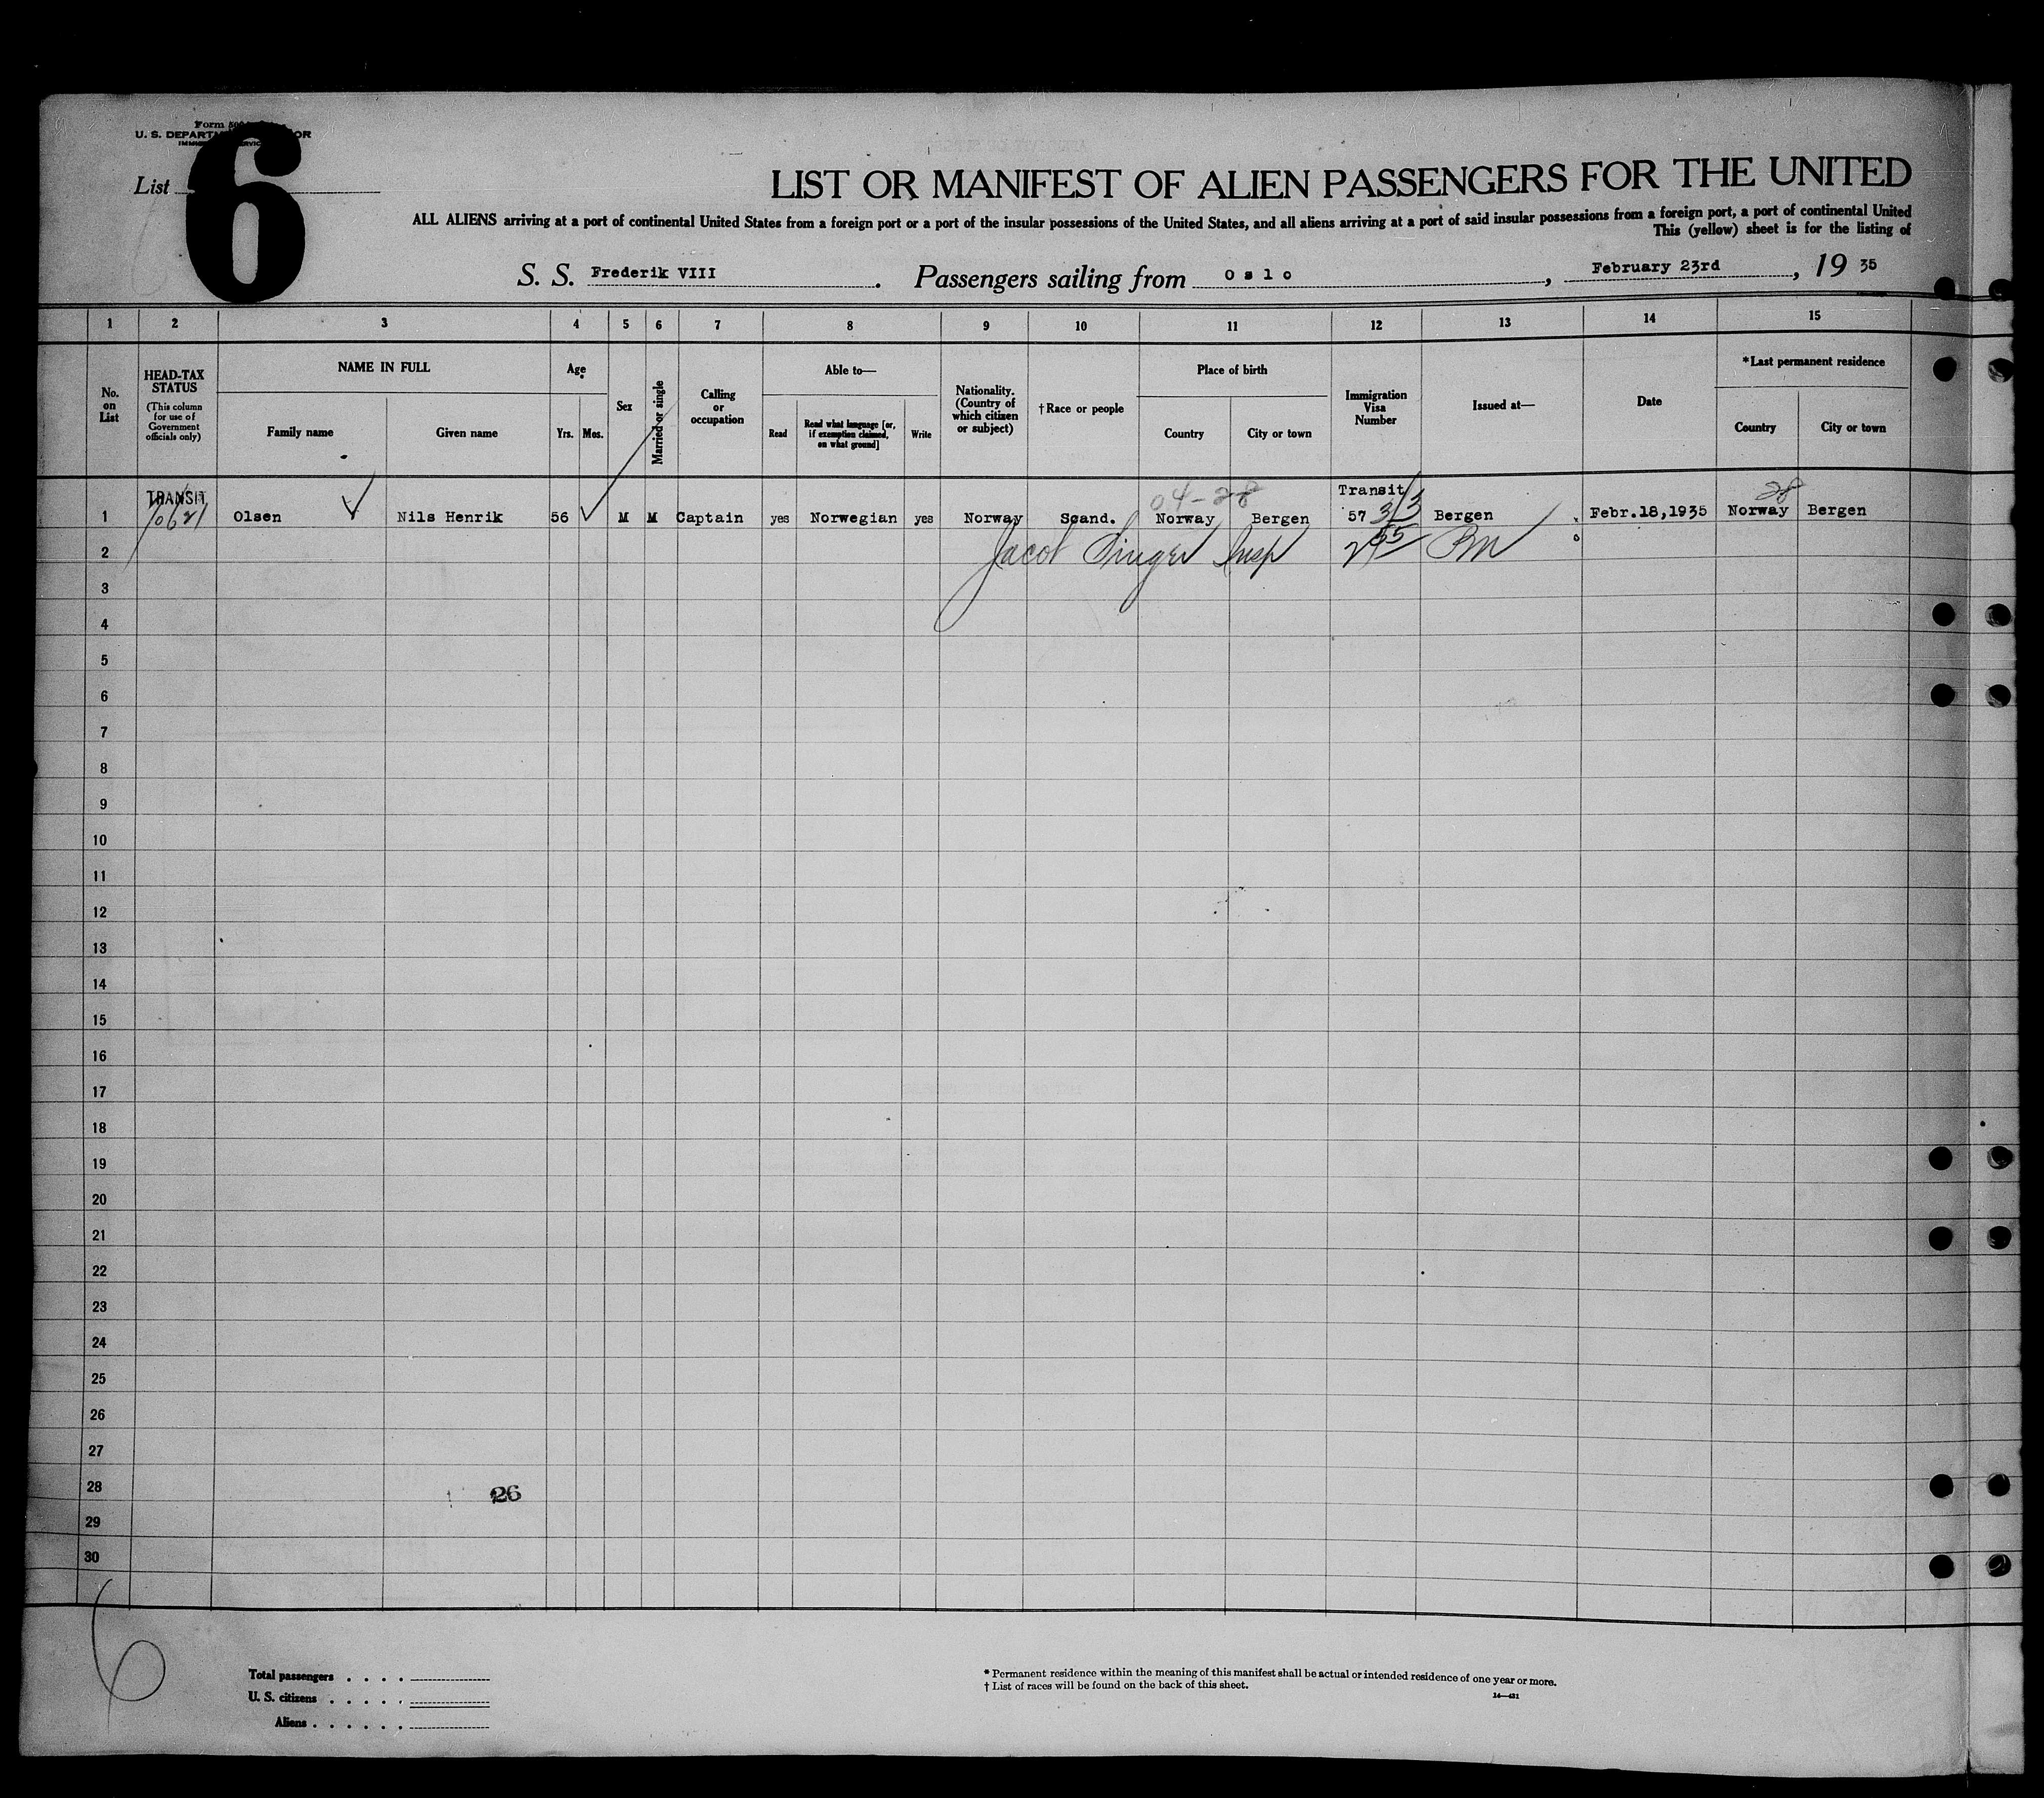 Form 500
U. S. DEPARTM OR
List 6
LIST OR MANIFEST OF ALIEN PASSENGERS FOR THE UNITED
ALL ALIENS arriving at a port of continental United States from a foreign port or a port of the insular possessions of the United States, and all aliens arriving at a port of said insular possessions from a foreign port, a port of continental United
This (yellow) sheet is for the listing of
S. S. Frederik VIII . Passengers sailing from Oslo , February 23rd , 19 35
1 2 3 4 5 6 7 8 9 10 11 12 13 14 15
No. on List
HEAD-TAX STATUS (This column for use of Government officials only)
NAME IN FULL
Family name Given name
Age
Yrs. Mos.
Sex
Married or single
Calling or occupation
Able to—
Read Read what language [or, if exemption claimed, on what ground] Write
Nationality. (Country of which citizen or subject)
† Race or people
Place of birth
Country City or town
Immigration Visa Number
Issued at—
Date
*Last permanent residence
Country City or town
TRANSIT 04-28 Transit 28
1 10621 Olsen Nils Henrik 56 M M Captain yes Norwegian yes Norway Scand. Norway Bergen 57 3/3 Bergen Febr.18,1935 Norway Bergen
2 Jacob Singer Insp
3
4
5
6
7
8
9
10
11
12
13
14
15
16
17
18
19
20
21
22
23
24
25
26
27
28 26
29
30
6
Total passengers . . . .
U. S. citizens . . . . .
Aliens . . . . . .
* Permanent residence within the meaning of this manifest shall be actual or intended residence of one year or more.
† List of races will be found on the back of this sheet.
14—421